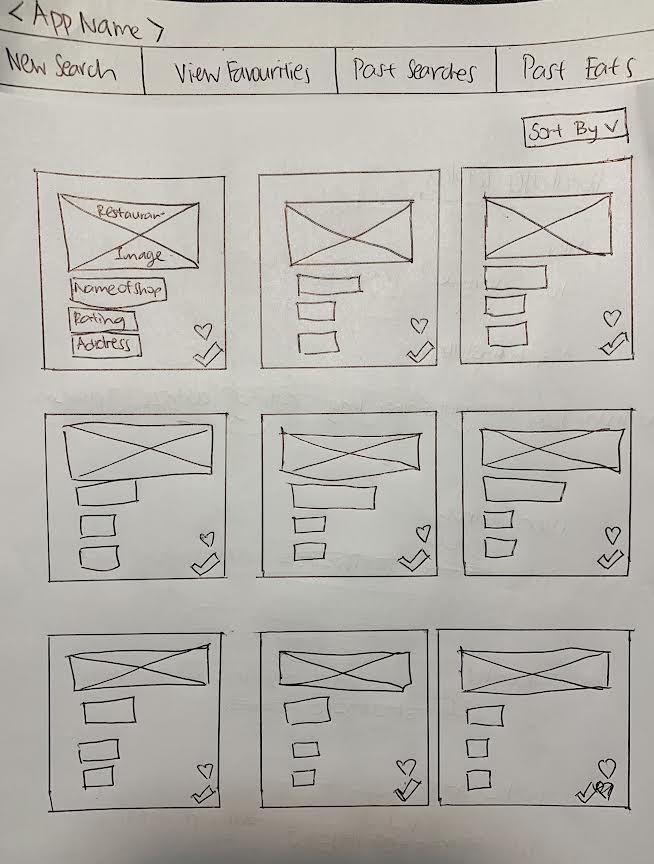 < App Name >
New Search View Favourities Past Searches Past Eats
Sort By
Restauran
Image
Name of shop
Rating
Address